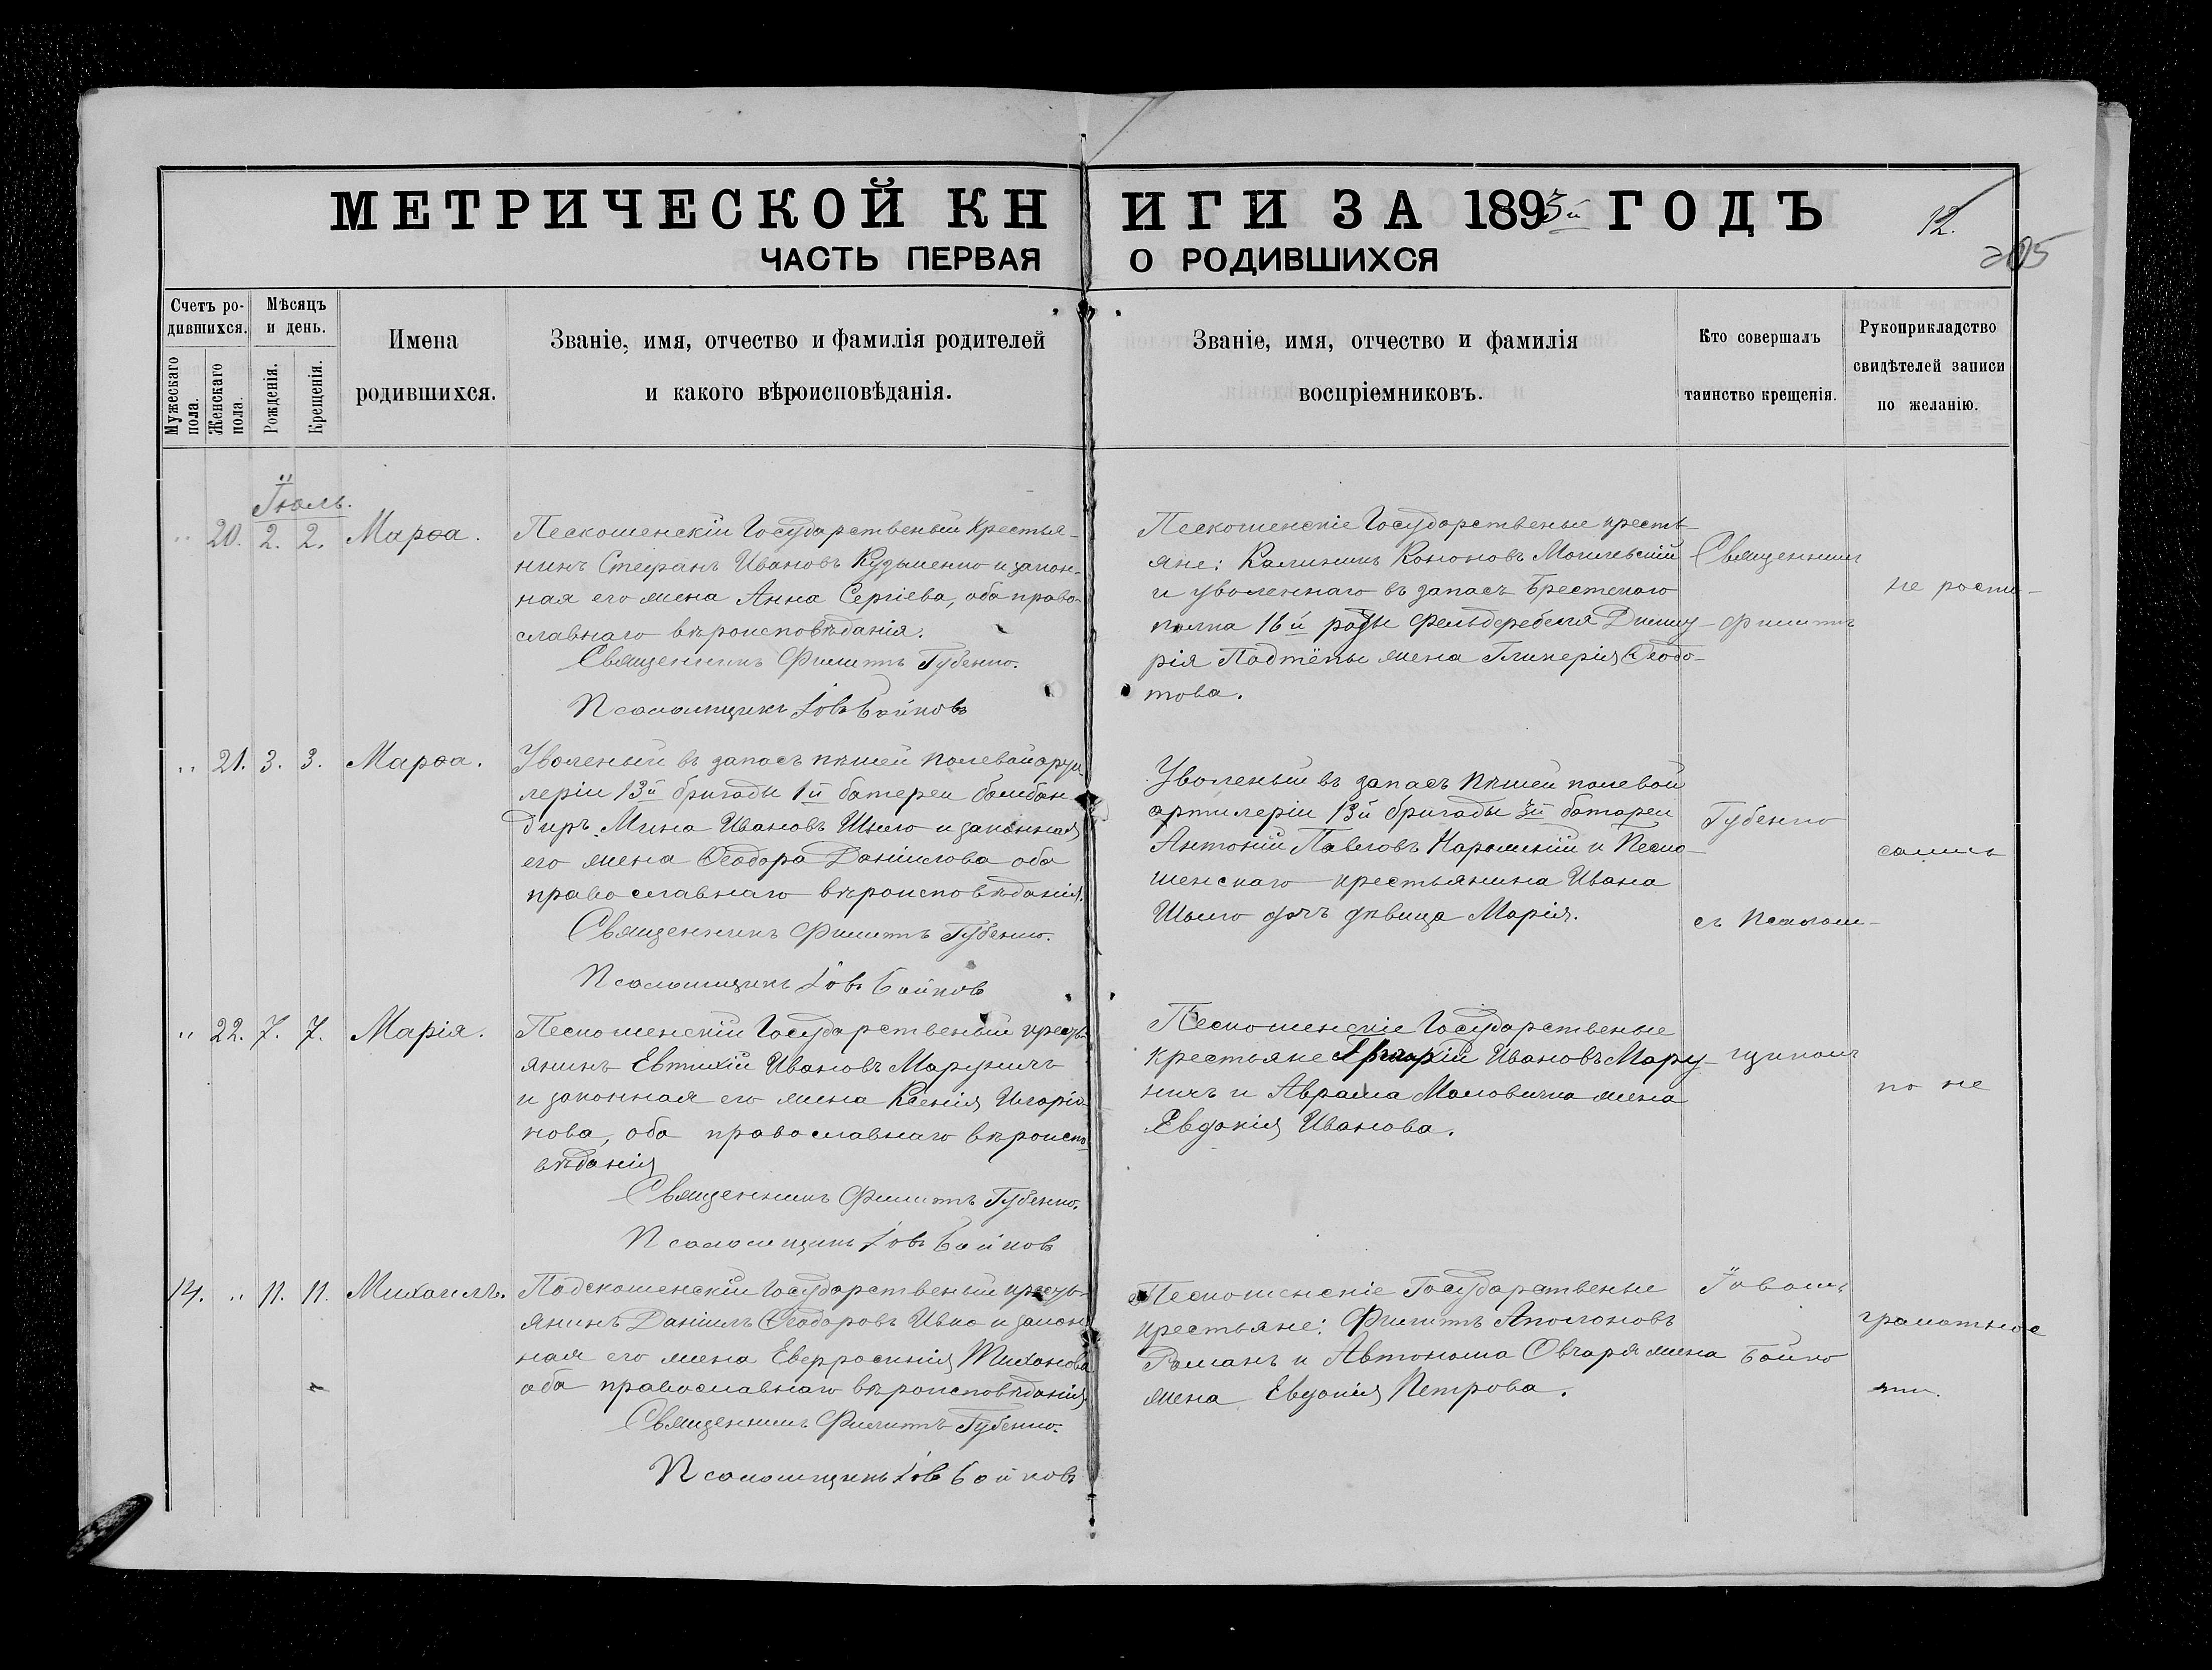 МЕТРИЧЕСКОЙ КНИГИ ЗА 1895й ГОДЪ
12.
205
ЧАСТЬ ПЕРВАЯ О РОДИВШИХСЯ
Счетъ родившихся.
Мужескаго пола.
Женскаго пола.
Мѣсяцъ и день.
Рожденія.
Крещенія.
Имена
родившихся.
Званіе, имя, отчество и фамилія родителей
и какого вѣроисповѣданія.
Званіе, имя, отчество и фамилія
воспріемниковъ.
Кто совершалъ
таинство крещенія.
Рукоприкладство
свидѣтелей записи
по желанію.
Іюль.
20. 2. 2. Марѳа.
Пескошенскій Государственый Крестья-
нинъ Стефанъ Ивановъ Кузьменко и закон-
ная его жена Анна Сергіева, оба право-
славнаго вѣроисповѣданія.
Священникъ Филиппъ Губенко.
Псаломщикъ Іовъ Бойковъ
Пескошенскіе Государственые кресть-
яне: Калиникъ Кононовъ Могилевскій
и уволеннаго въ запасъ Брестскаго
полка 16й роты Фельдфебеля Димит-
рія жена Гликерія Ѳеодо-
това.
21. 3. 3. Марѳа.
Уволеный въ запасъ пѣшей полевой арти
леріи 13й бригады 1й батереи бомбан
диръ Мина Ивановъ и законная
его жена Ѳеодора Даніилова оба
православнаго вѣроисповѣданія.
Священникъ Филиппъ Губенко.
Псаломщикъ Іовъ Бойков
Уволеный въ запасъ Пѣшей полевой
артилеріи 13й бригады 3й батареи
Антоній Павловъ и Песко-
шенскаго крестьянина Ивана
дочь дѣвица Марія.
22. 7. 7. Марія.
Пескошенскій Государственый кресть-
янинъ Евтихій Ивановъ Маруничъ
и законная его жена Ксенія Иларіо-
нова, оба православнаго вѣроиспо
вѣданія
Священникъ Филиппъ Губенко.
Псаломщикъ Іовъ Бойковъ
Пескошенскіе Государственые
крестьяне Ивановъ Мару-
ничъ и Аврама жена
Евдокія Иванова.
14. 11. 11. Михаилъ.
Подскошенскій Государственый кресть-
янинъ Даніилъ Ѳеодоровъ Ивко и закон
ная его жена Еверросинія Тихонова
оба православнаго вѣроисповѣданія
Священникъ Филиппъ Губенко.
Псаломщикъ Іов Бойковъ
Пескошенскіе Государственые
крестьяне: Филиппъ Аполоновъ
Романъ и Автонома Овчаря жена
жена Евдокія Петрова.
Священникъ
Филиппъ
Губенко
съ Псалом-
щикомъ
Іовомъ
Бойко
не роспи-
сались
по не
грамотнос
ти.